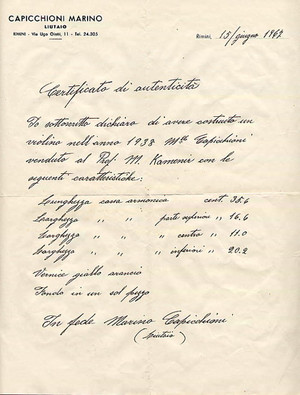 CAPICCHIONI MARINO
LIUTAIO
RIMINI - Via Ugo Oietti, 11 - Tel. 24.303
Rimini, 15/giugno 1962
Certificato di autenticità
Io sottoscritto dichiaro di avere costruito un
violino nell'anno 1938 Capicchioni
venduto al Prof. M. Kamenir con le
seguenti caratteristiche:
Lunghezza cassa armonica cent. 35.6
Larghezza „ „ parte superiore „ 16.6
Larghezza „ „ „ centro „ 11.0
Larghezza „ „ „ inferiori „ 20.2
Vernice giallo arancio
Fondo in un sol pezzo
In fede Marino Capicchioni
(Liutaio)